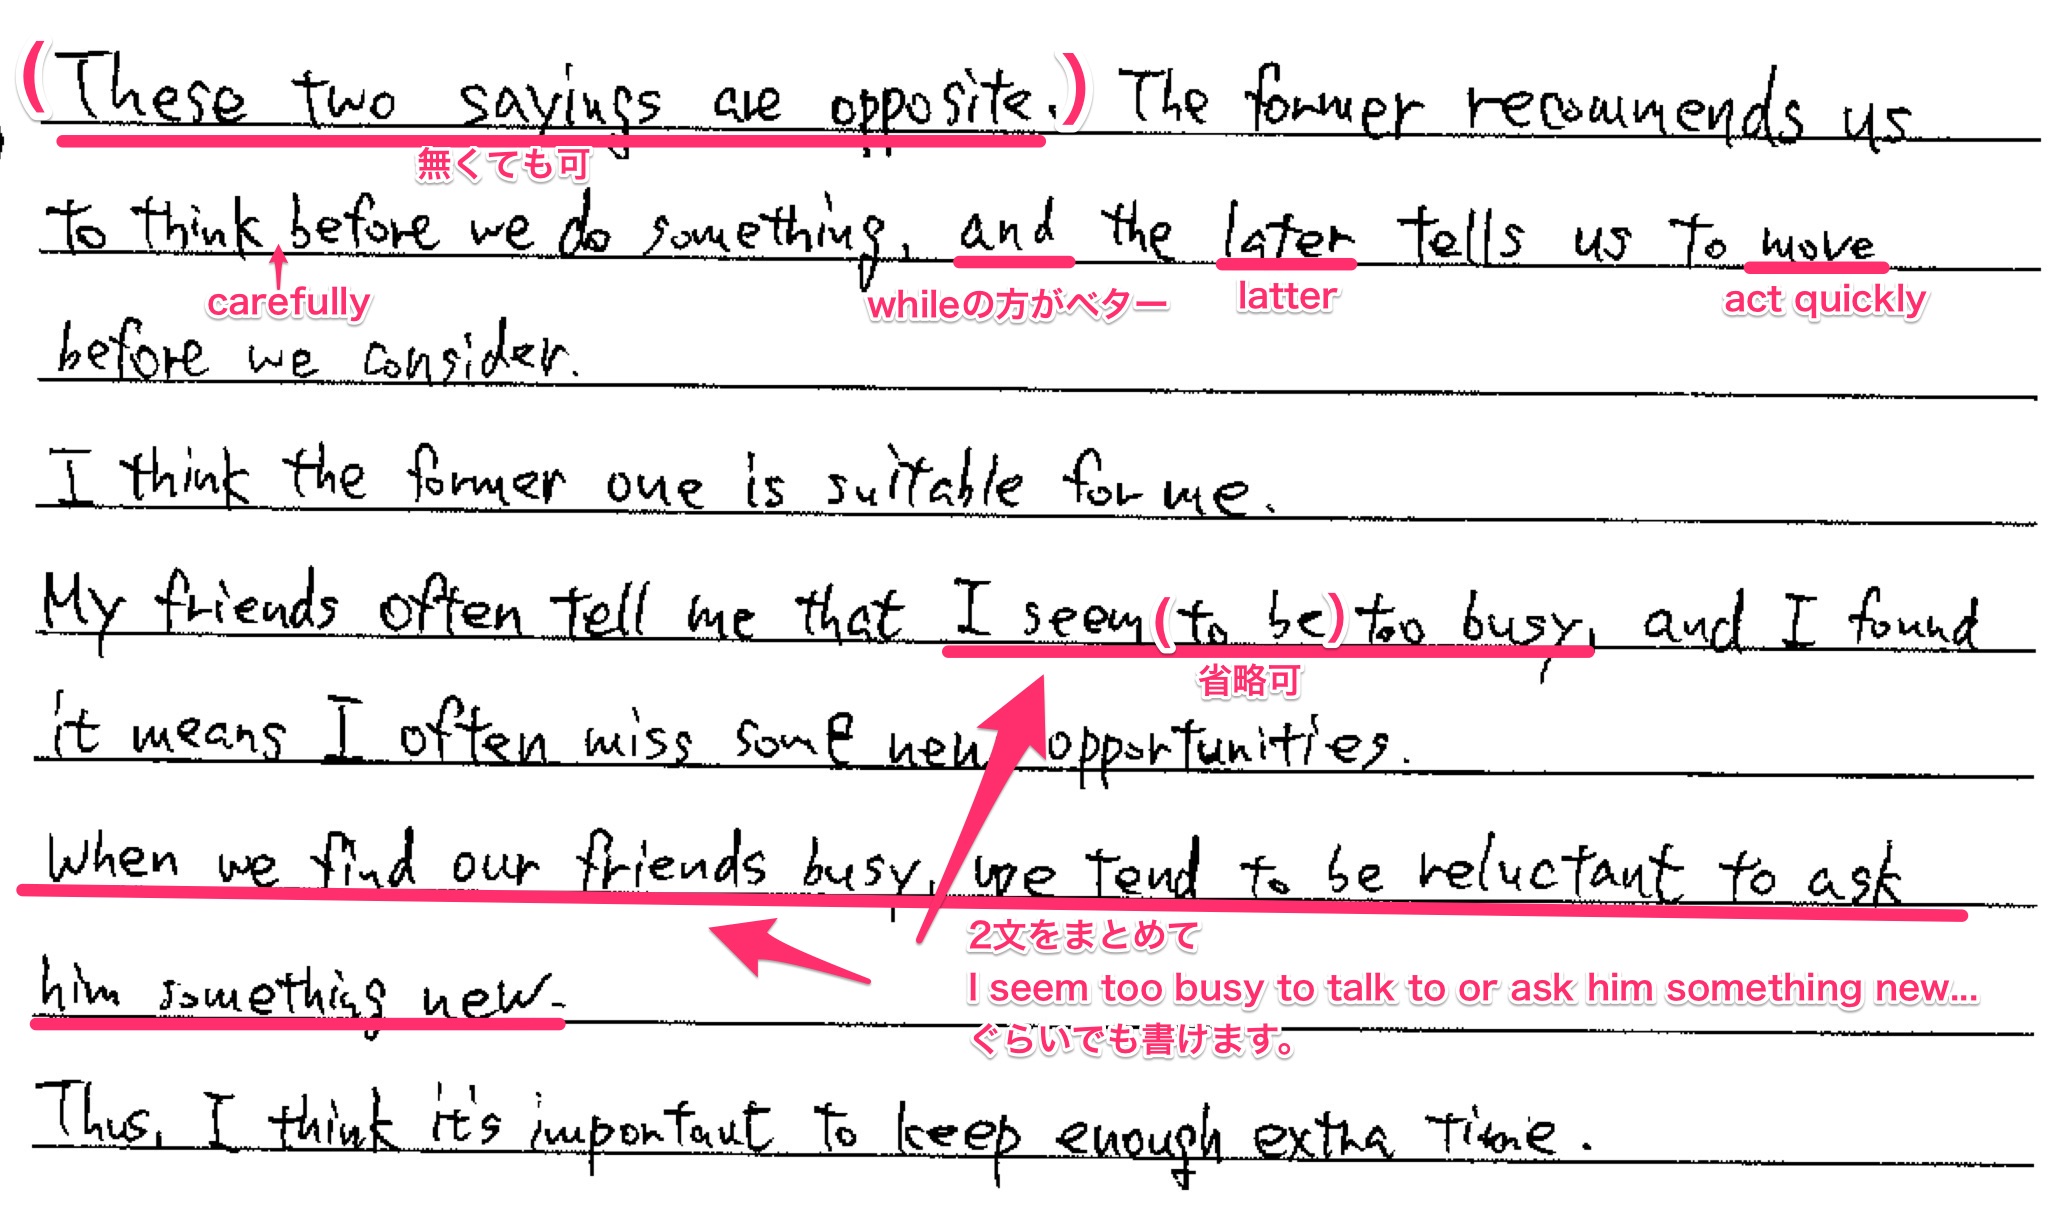 (These two sayings are opposite.) The former recommends us
無くても可
to think before we do something, and the later tells us to move
carefully
whileの方がベター
latter
act quickly
before we consider.
I think the former one is suitable for me.
My friends often tell me that I seem (to be) too busy, and I found
省略可
it means I often miss some new opportunities.
When we find our friends busy, we tend to be reluctant to ask
2文をまとめて
him something new.
I seem too busy to talk to or ask him something new...
ぐらいでも書けます。
Thus, I think it's important to keep enough extra time.